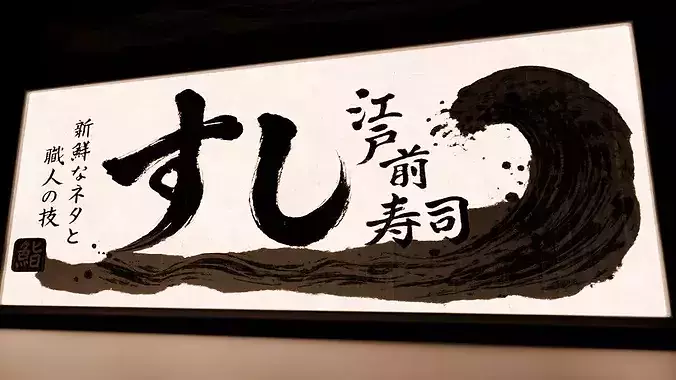 すし
江戸前
寿司
新鮮なネタと
職人の技
鮨